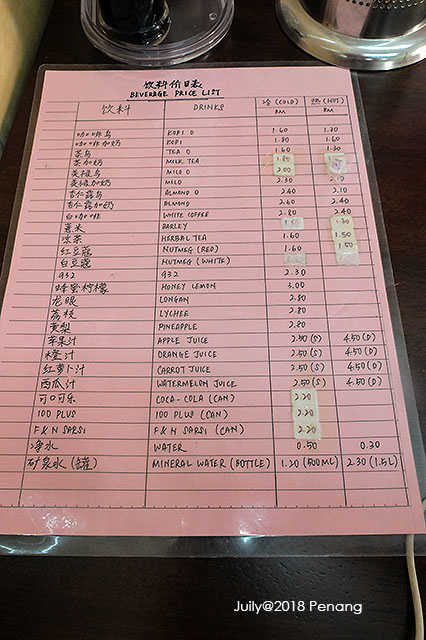 饮料价目表
BEVERAGE PRICE LIST
饮料 DRINKS 冷 (COLD) RM 热 (HOT) RM
咖啡乌 KOPI O 1.60 1.20
咖啡加奶 KOPI 1.80 1.60
茶乌 TEA O 1.60 1.30
茶加奶 MILK TEA 1.80
美禄乌 MILO O 2.00
美禄加奶 MILO 2.30 2.10
杏仁露乌 ALMOND O 2.40 2.10
杏仁露加奶 ALMOND 2.60 2.40
白咖啡 WHITE COFFEE 2.80 2.40
薏米 BARLEY 1.50 1.30
凉茶 HERBAL TEA 1.60 1.50
红豆蔻 NUTMEG (RED) 1.60 1.50
白豆蔻 NUTMEG (WHITE)
932 932 2.30
蜂蜜柠檬 HONEY LEMON 3.00
龙眼 LONGAN 2.80
荔枝 LYCHEE 2.80
黄梨 PINEAPPLE 2.80
苹果汁 APPLE JUICE 2.50 (S) 4.50 (D)
橙汁 ORANGE JUICE 2.50 (S) 4.50 (D)
红萝卜汁 CARROT JUICE 2.50 (S) 4.50 (D)
西瓜汁 WATERMELON JUICE 2.50 (S) 4.50 (D)
可口可乐 COCA-COLA (CAN) 2.20
100 PLUS 100 PLUS (CAN) 2.20
F&N SARSI F&N SARSI (CAN) 2.20
净水 WATER 0.50 0.30
矿泉水 (罐) MINERAL WATER (BOTTLE) 1.20 (500ML) 2.30 (1.5L)
Juily@2018 Penang